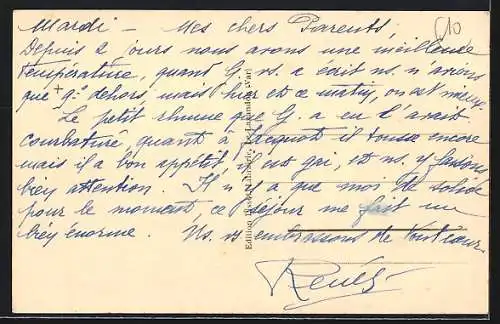 Mardi - Mes chers Parents,
£10
Depuis 2 jours nous avons une meilleure
température, quant G. vs. a écrit ns. n'avions
que + 9° dehors, mais hier et ce matin, on est mieux.
Le petit rhume que G. a eu l'avait
courbaturé, quant à Jacquot il tousse encore
mais il a bon appétit, il est gai, et ns. y faisons
bien attention. Il n'y a que moi de solide
pour le moment, ce séjour me fait un
bien énorme. Ns. vs. embrassons de tout cœur.
Renée